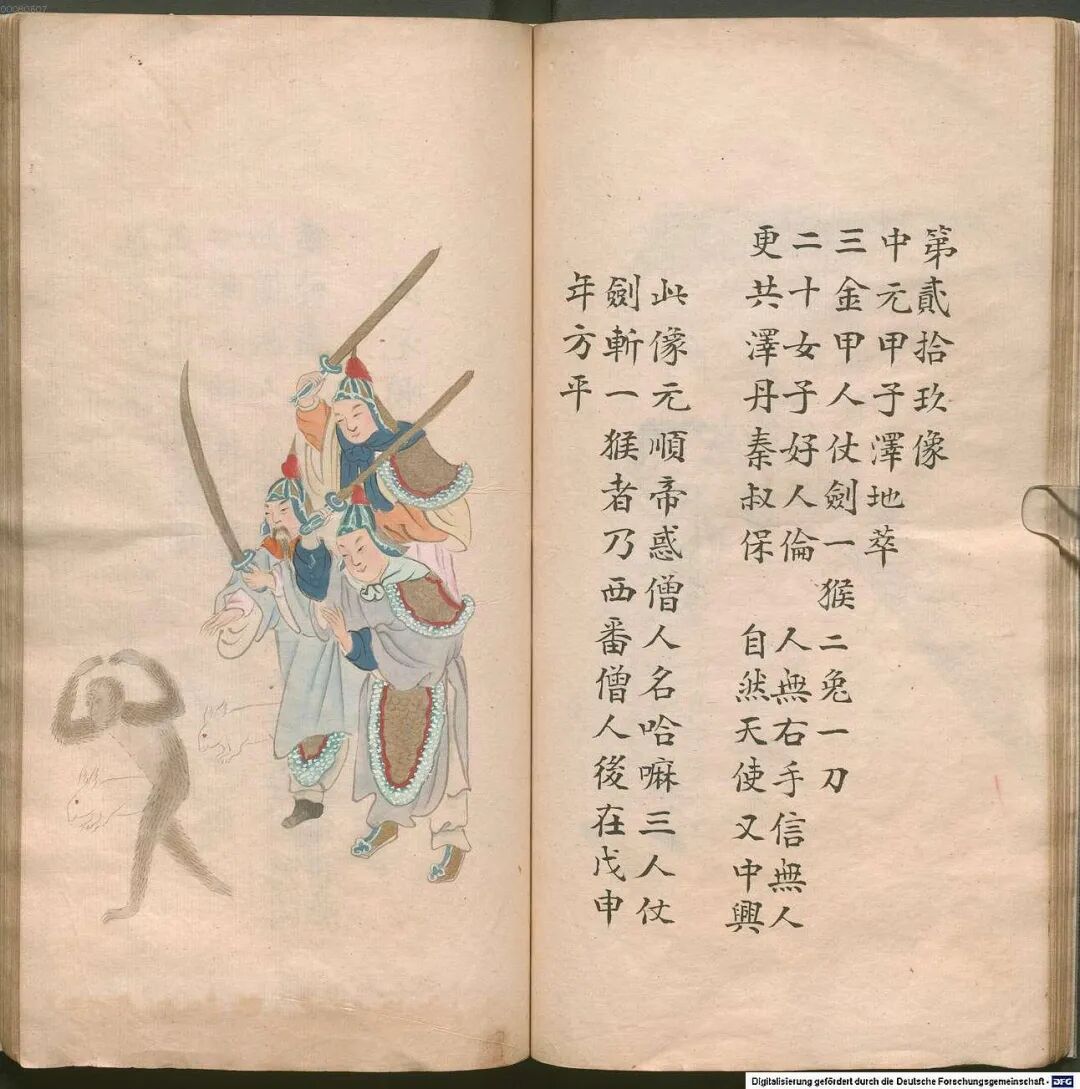 第貳拾玖像
中元甲子澤地萃
三金甲人仗劍一猴二兔一刀
二十女子好人倫 人無右手信無人
更共澤丹秦叔保 自然天使又中興
此像元順帝惑僧人名哈嘛三人仗
劍斬一猴者乃西番僧人後在戊申
年方平
Digitalisierung gefördert durch die Deutsche Forschungsgemeinschaft - DFG